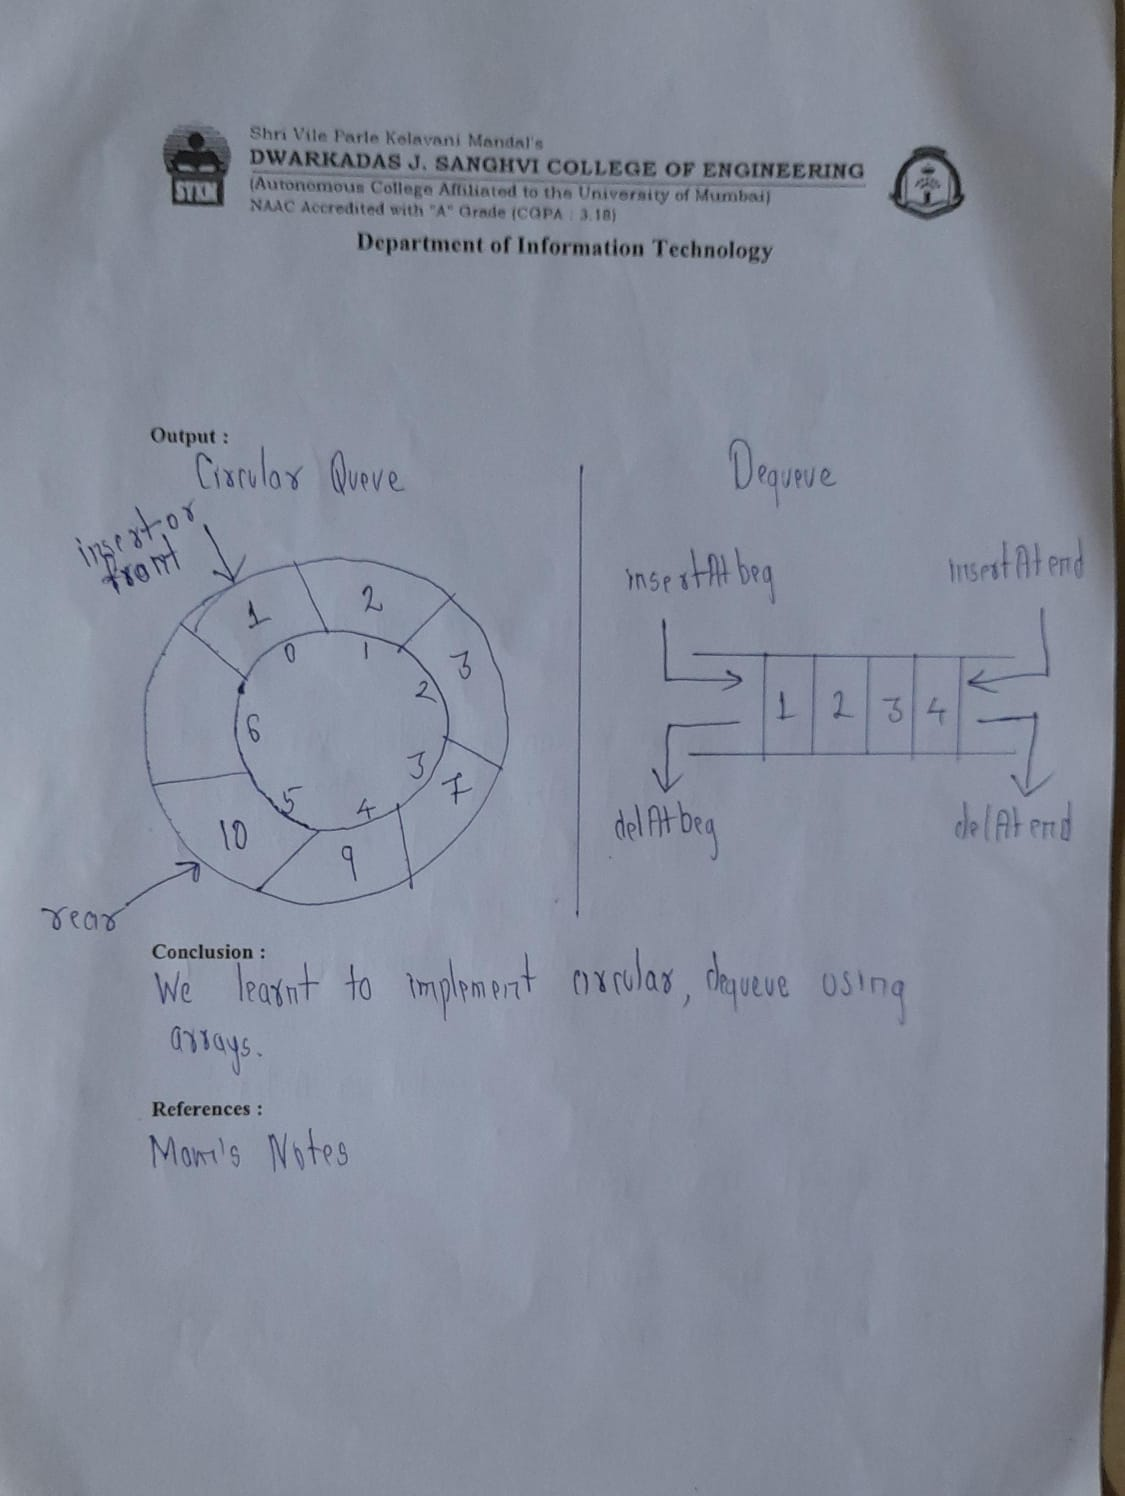 Shri Vile Parle Kelavani Mandal's
DWARKADAS J. SANGHVI COLLEGE OF ENGINEERING
(Autonomous College Affiliated to the University of Mumbai)
NAAC Accredited with "A" Grade (CGPA : 3.18)
STKM
Department of Information Technology
Output :
Circular Queue
insertor
front
1
2
3
7
9
10
0
1
2
3
4
5
6
rear
Dequeue
insertAtbeg
insertAtend
1 2 3 4
delAtbeg
delAtend
Conclusion :
We learnt to implement circular, dequeue using
arrays.
References :
Mam's Notes